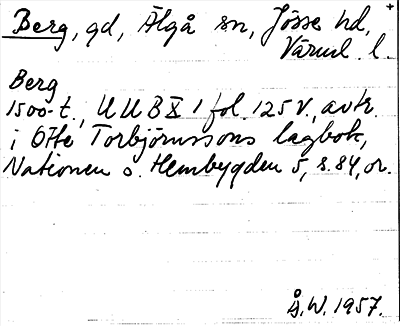 Berg, gd, Älgå sn, Jösse hd,
Värml. l.
Berg
1500-t., UUB X 1 fol. 125 v., avtr.
i Otte Torbjörnssons lagbok,
Nationen o. Hembygden 5, s. 84, or.
Å.W. 1957.